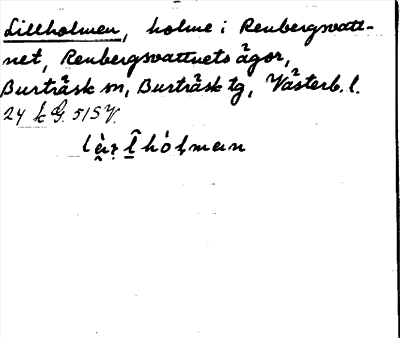 Lillholmen, holme i Renbergsvatt-
net, Renbergsvattnets ägor,
Burträsk sn, Burträsk tg, Västerb. l.
24 k G. 5151
hólmen